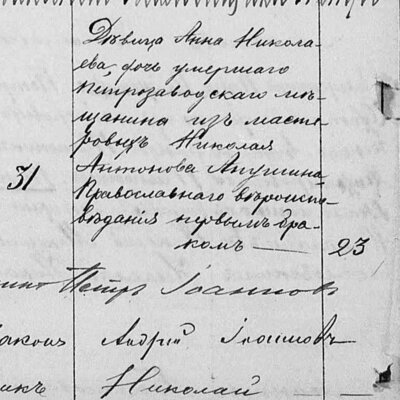 Дѣвица Анна Никола-
ева, дочь умершаго
Петрозаводскаго мѣ-
щанина изъ масте-
ровыхъ Николая
Антонова
31
Православнаго вѣроиспо-
вѣданія первымъ бра-
комъ — 23
Петръ Іоанновъ
Андрей
Николай